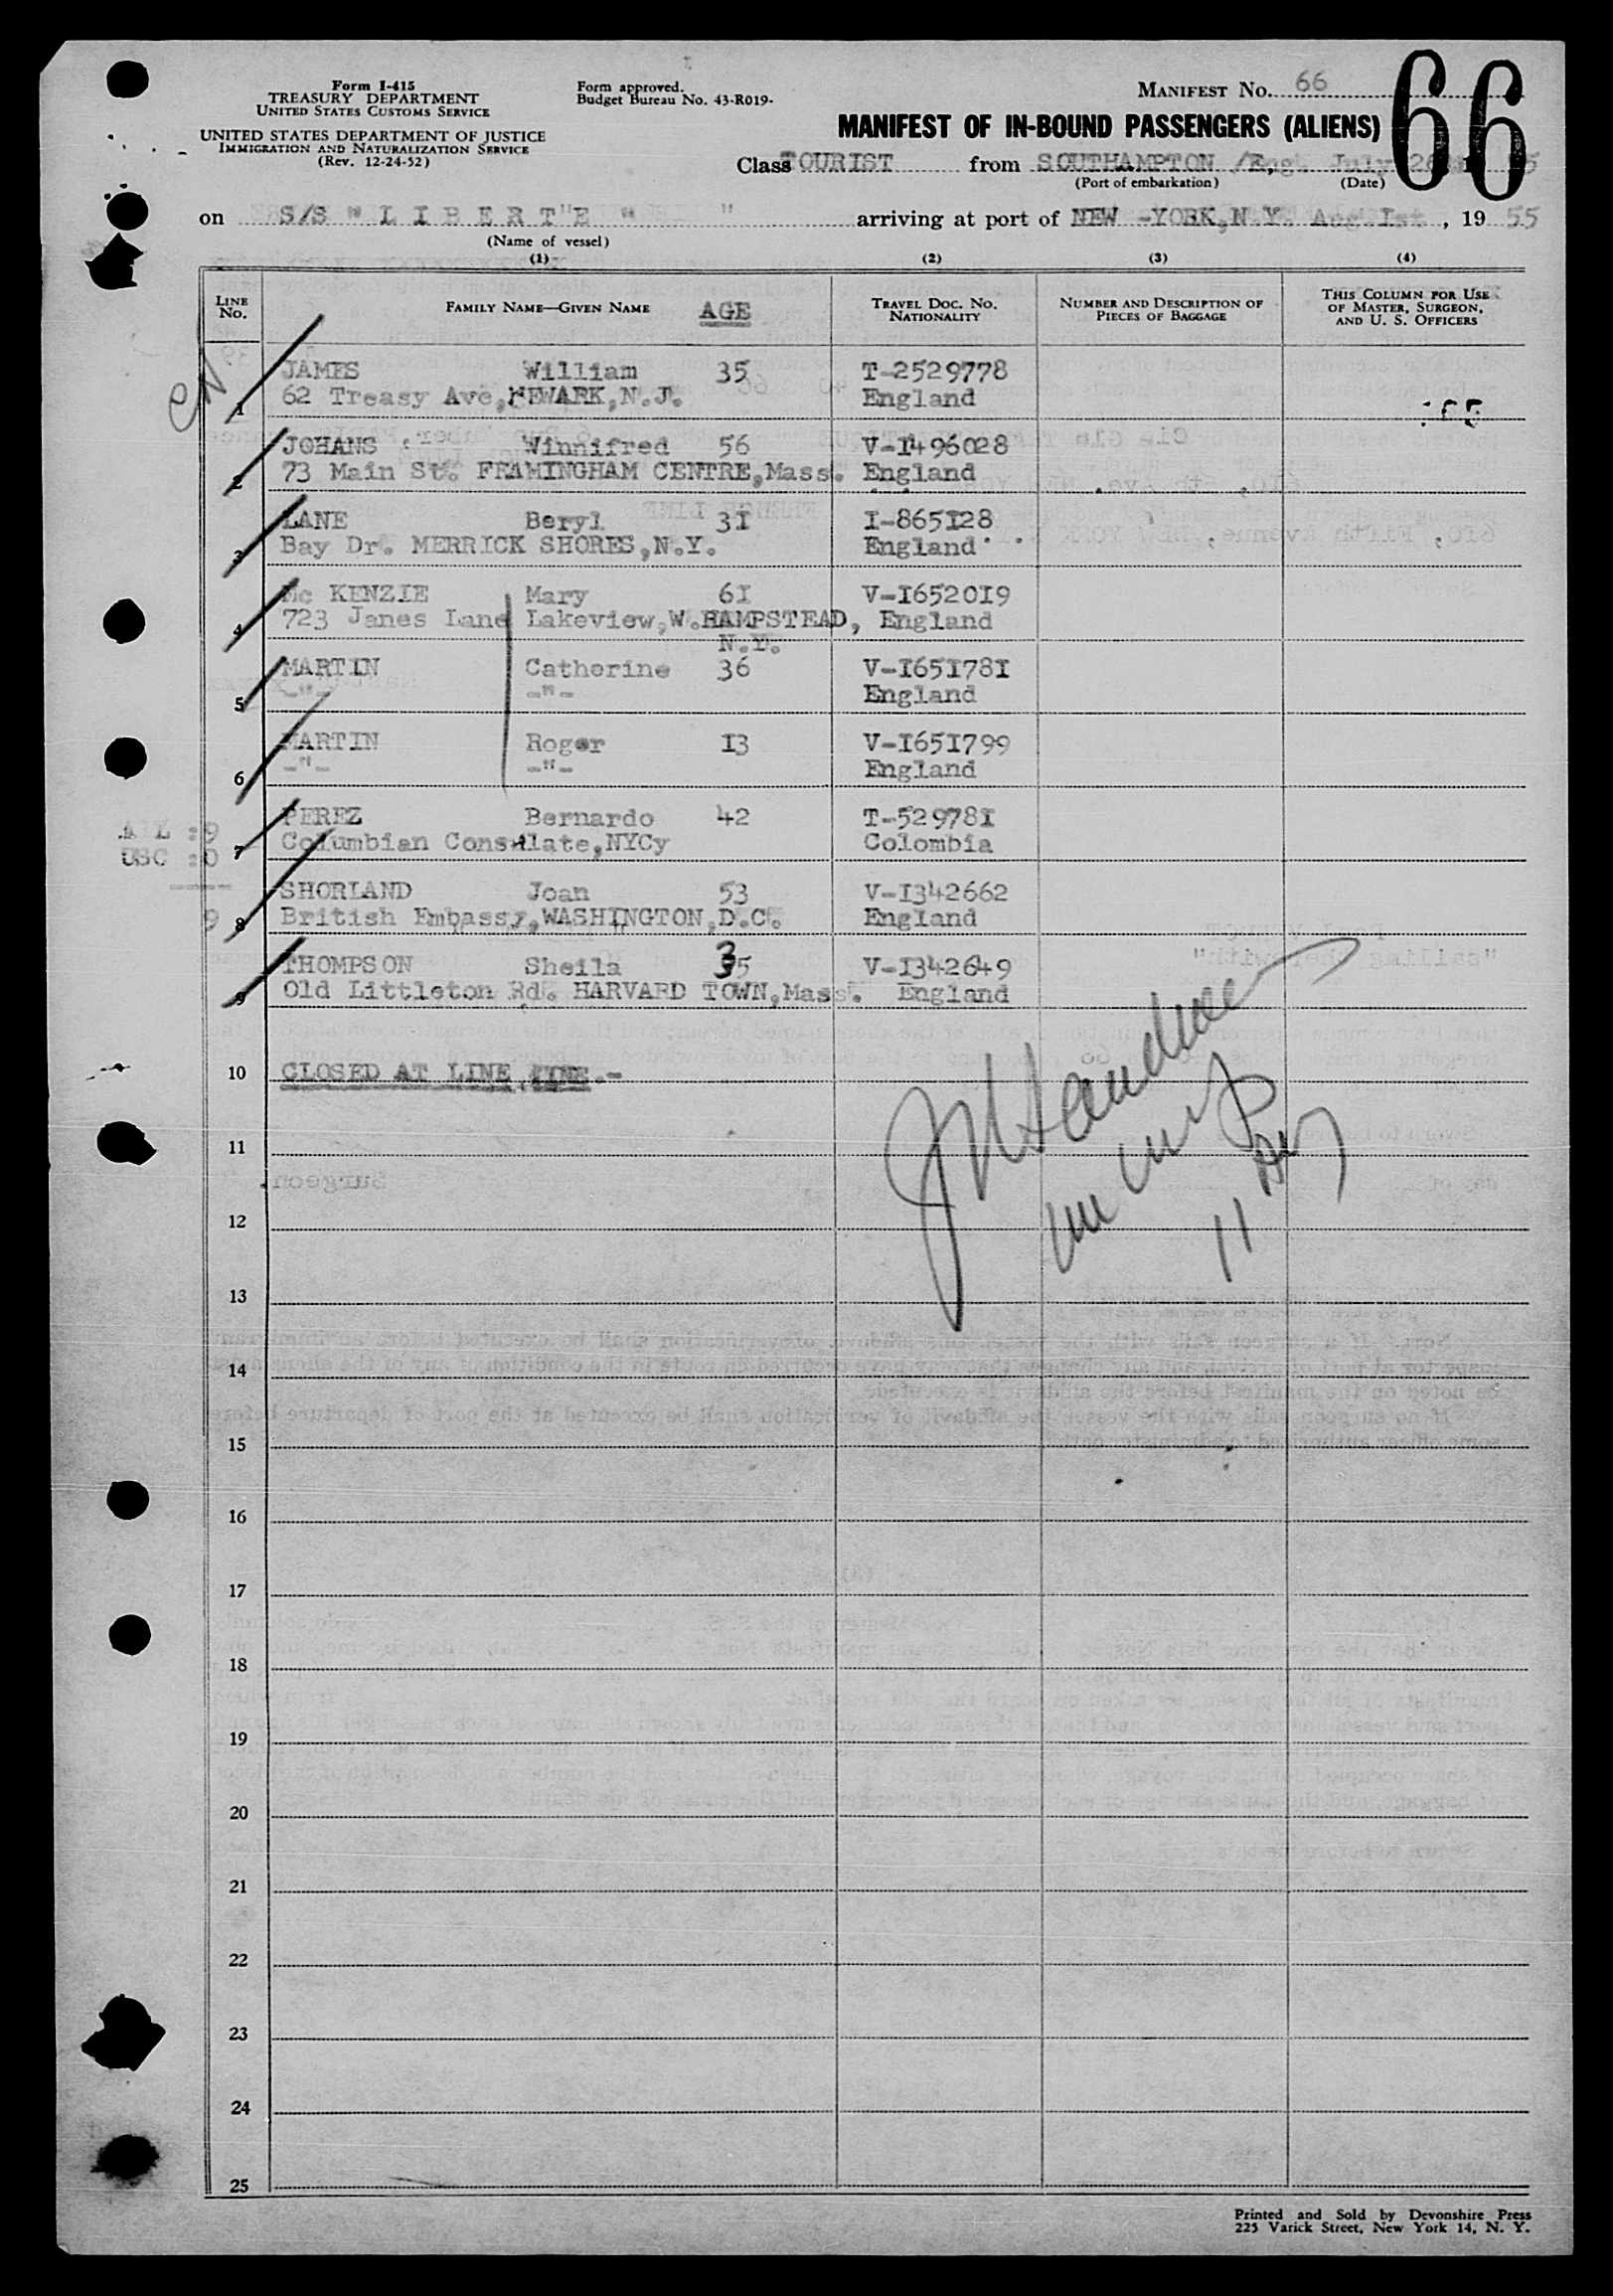 Form I-415
TREASURY DEPARTMENT
UNITED STATES CUSTOMS SERVICE
UNITED STATES DEPARTMENT OF JUSTICE
IMMIGRATION AND NATURALIZATION SERVICE
(Rev. 12-24-52)
Form approved.
Budget Bureau No. 43-R019-
MANIFEST NO. 66
66
MANIFEST OF IN-BOUND PASSENGERS (ALIENS)
Class TOURIST from SOUTHAMPTON /Eng. July 26
(Port of embarkation) (Date)
on S/S " L I B E R T E " arriving at port of NEW -YORK,N.Y. Aug.Ist , 19 55
(Name of vessel)
(1) (2) (3) (4)
LINE NO. FAMILY NAME—GIVEN NAME AGE TRAVEL DOC. NO. NATIONALITY NUMBER AND DESCRIPTION OF PIECES OF BAGGAGE THIS COLUMN FOR USE OF MASTER, SURGEON, AND U. S. OFFICERS
JAMES William 35 T-2529778
1 62 Treasy Ave,NEWARK,N.J. England
JOHANS Winnifred 56 V-I496028
2 73 Main St. FRAMINGHAM CENTRE,Mass. England
LANE Beryl 3I I-865I28
3 Bay Dr. MERRICK SHORES,N.Y. England
Mc KENZIE Mary 6I V-I652019
4 723 Janes Lane Lakeview,W.HAMPSTEAD, England
N.Y.
MARTIN Catherine 36 V-I65I78I
5 -"- -"- England
MARTIN Roger I3 V-I65I799
6 -"- -"- England
PEREZ Bernardo 42 T-52978I
7 Columbian Consulate,NYCy Colombia
SHORLAND Joan 53 V-I342662
8 British Embassy,WASHINGTON,D.C. England
THOMPSON Sheila 35 V-I342649
9 Old Littleton Rd. HARVARD TOWN,Mass. England
USC :0
9
10 CLOSED AT LINE NINE.-
11
12
13
14
15
16
17
18
19
20
21
22
23
24
25
Printed and Sold by Devonshire Press
225 Varick Street, New York 14, N. Y.